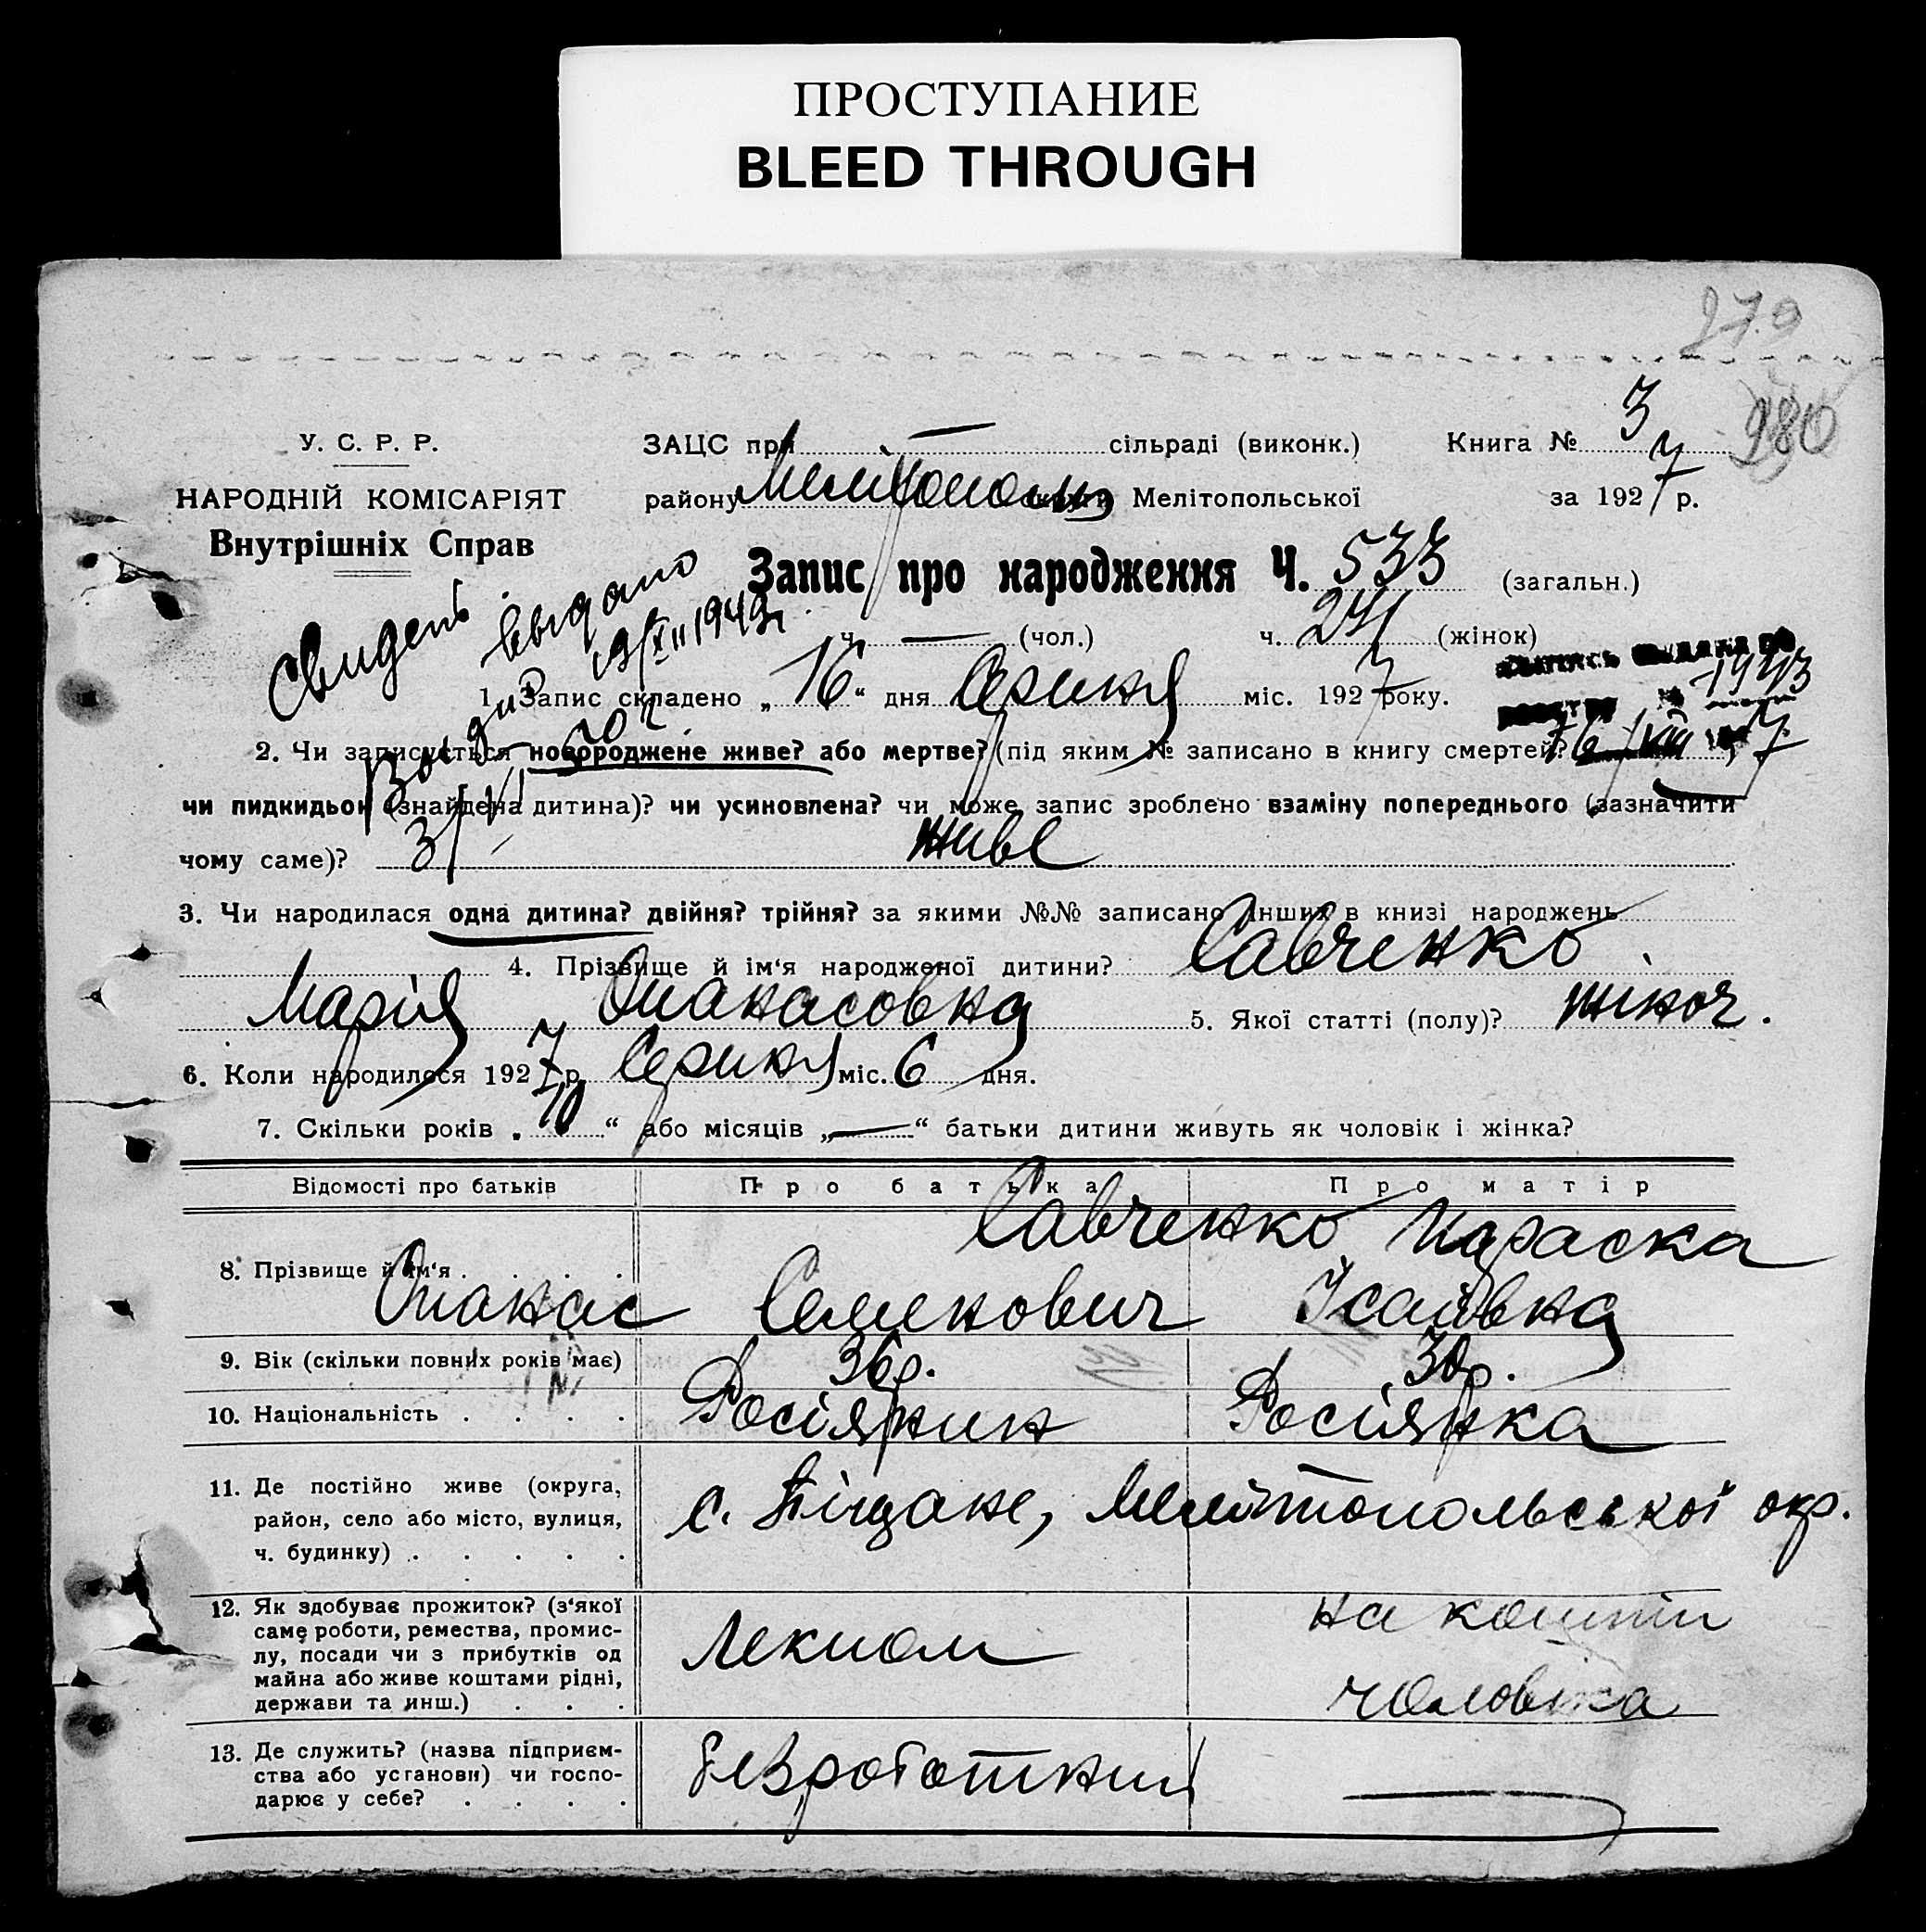 ПРОСТУПАНИЕ
BLEED THROUGH
279
280
У. С. Р. Р.
ЗАЦС при — сільраді (виконк.) Книга № 3
НАРОДНІЙ КОМІСАРІЯТ
району Мелітополь округи Мелітопольської за 1927 р.
Внутрішніх Справ
Запис про народження Ч. 533 (загальн.)
Свидет. выдано
ч. — (чол.) ч. 241 (жінок)
1943
1. Запис складено „16“ дня Серпня міс. 1927 року.
2. Чи записується новороджене живе? або мертве? (під яким № записано в книгу смертей?
чи пидкидьок (знайдена дитина)? чи усиновлена? чи може запис зроблено взаміну попереднього (зазначити
чому саме)? живе
3. Чи народилася одна дитина? двійня? трійня? за якими №№ записано інших в книзі народжень
4. Прізвище й ім‘я народженої дитини? Савченко
Марія Опанасовна 5. Якої статті (полу)? жіноч.
6. Коли народилося 1927 р. Серпня міс. 6 дня.
7. Скільки років „10“ або місяців „—“ батьки дитини живуть як чоловік і жінка?
Відомості про батьків Про батька Про матір
8. Прізвище й ім‘я . . . . Савченко Параска
Опанас Семенович Ісаївна
9. Вік (скільки повних років має) 36 р. 30 р.
10. Національність . . . . Росіянин Росіянка
11. Де постійно живе (округа,
район, село або місто, вулиця,
ч. будинку) . . . . .
с. Піщане, Мелітопольської окр.
12. Як здобуває прожиток? (з‘якої
саме роботи, ремества, промис-
лу, посади чи з прибутків од
майна або живе коштами рідні,
держави та инш.) . . .
на кошти
чоловіка
13. Де служить? (назва підприєм-
ства або установи) чи госпо-
дарює у себе? . . . .
Безработний —